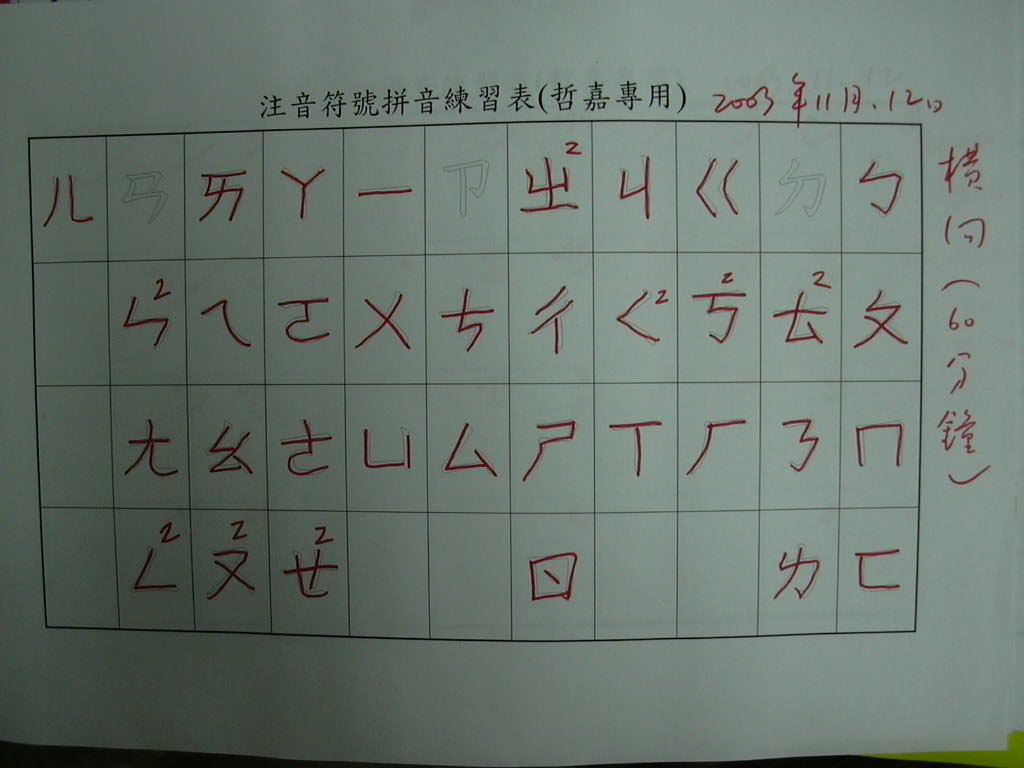 注音符號拼音練習表(哲嘉專用) 2003年11月.12日
ㄦ ㄢ ㄞ ㄚ ㄧ ㄗ ㄓ2 ㄐ ㄍ ㄉ ㄅ
ㄣ2 ㄟ ㄛ ㄨ ㄘ ㄔ ㄑ2 ㄎ2 ㄊ2 ㄆ
ㄤ ㄠ ㄜ ㄩ ㄙ ㄕ ㄒ ㄏ ㄋ ㄇ
ㄥ2 ㄡ2 ㄝ2 ㄖ ㄌ ㄈ
橫向(60分鐘)